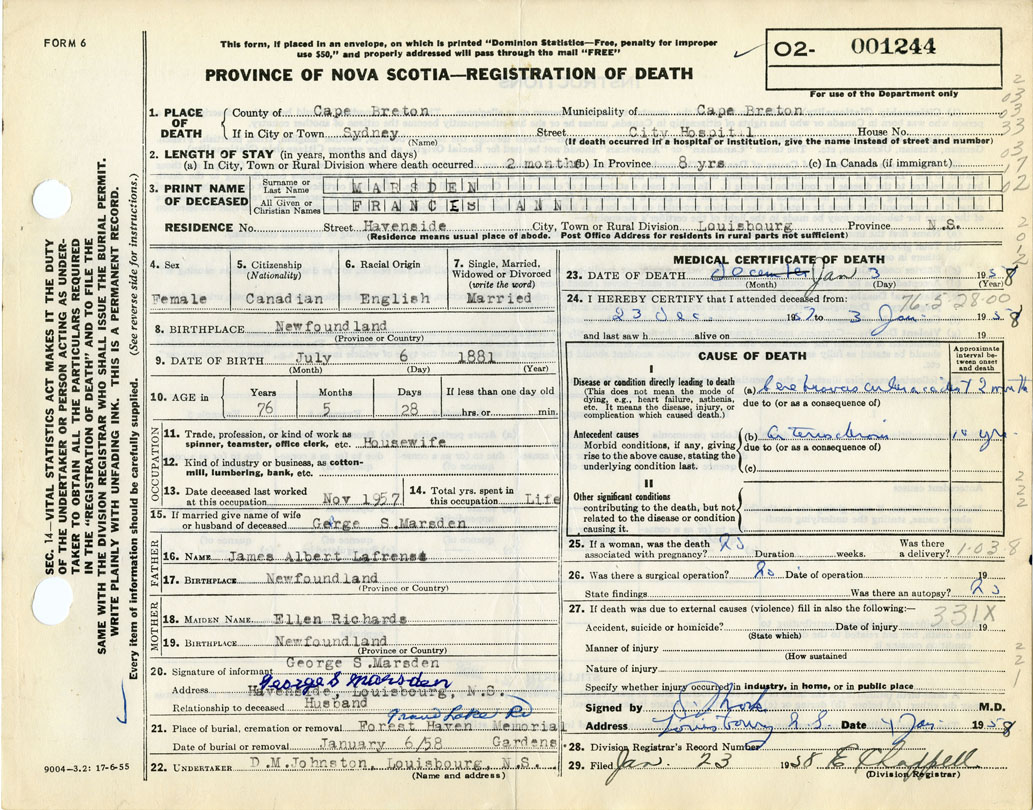 FORM 6
This form, if placed in an envelope, on which is printed "Dominion Statistics—Free, penalty for improper
use $50," and properly addressed will pass through the mail "FREE"
O2- 001244
For use of the Department only
PROVINCE OF NOVA SCOTIA—REGISTRATION OF DEATH
1. PLACE OF DEATH
County of Cape Breton Municipality of Cape Breton
If in City or Town Sydney Street City Hospital House No.
(Name) (If death occurred in a hospital or institution, give the name instead of street and number)
2. LENGTH OF STAY (in years, months and days)
(a) In City, Town or Rural Division where death occurred 2 months (b) In Province 8 yrs (c) In Canada (if immigrant)
3. PRINT NAME OF DECEASED
Surname or Last Name MARSDEN
All Given or Christian Names FRANCES ANN
RESIDENCE No. Street Havenside City, Town or Rural Division Louisbourg Province N.S.
(Residence means usual place of abode. Post Office Address for residents in rural parts not sufficient)
4. Sex
Female
5. Citizenship
(Nationality)
Canadian
6. Racial Origin
English
7. Single, Married,
Widowed or Divorced
(write the word)
Married
8. BIRTHPLACE Newfoundland
(Province or Country)
9. DATE OF BIRTH July 6 1881
(Month) (Day) (Year)
10. AGE in
Years Months Days If less than one day old
76 5 28 hrs. or min.
OCCUPATION
11. Trade, profession, or kind of work as
spinner, teamster, office clerk, etc. Housewife
12. Kind of industry or business, as cotton-
mill, lumbering, bank, etc.
13. Date deceased last worked
at this occupation Nov 1957
14. Total yrs. spent in
this occupation Life
15. If married give name of wife
or husband of deceased George S.Marsden
FATHER
16. NAME James Albert Lafrense
17. BIRTHPLACE Newfoundland
(Province or Country)
MOTHER
18. MAIDEN NAME Ellen Richards
19. BIRTHPLACE Newfoundland
(Province or Country)
George S.Marsden
20. Signature of informant George S Marsden
Address Havenside, Louisbourg, N.S.
Relationship to deceased Husband
Grand Lake Rd
21. Place of burial, cremation or removal Forest Haven Memorial
Date of burial or removal January 6/58 Gardens
22. UNDERTAKER D.M.Johnston, Louisbourg, N.S.
(Name and address)
MEDICAL CERTIFICATE OF DEATH
23. DATE OF DEATH December Jan 3 1958
(Month) (Day) (Year)
76-5-28-00
24. I HEREBY CERTIFY that I attended deceased from:
23 dec 1957 to 3 Jan 1958
and last saw h alive on 19
CAUSE OF DEATH
Approximate interval be-tween onset and death
I
Disease or condition directly leading to death
(This does not mean the mode of
dying, e.g., heart failure, asthenia,
etc. It means the disease, injury, or
complication which caused death.)
(a) 2 month
due to (or as a consequence of)
Antecedent causes
Morbid conditions, if any, giving
rise to the above cause, stating the
underlying condition last.
(b) 10 yrs
due to (or as a consequence of)
(c)
II
Other significant conditions
contributing to the death, but not
related to the disease or condition
causing it.
25. If a woman, was the death
associated with pregnancy? No Duration weeks. Was there
a delivery? 1-038
26. Was there a surgical operation? No Date of operation 19
State findings Was there an autopsy? No
27. If death was due to external causes (violence) fill in also the following:—
331X
Accident, suicide or homicide? Date of injury 19
(State which)
Manner of injury
(How sustained
Nature of injury
Specify whether injury occurred in industry, in home, or in public place
Signed by M.D.
Address Louisbourg N.S. Date 4 Jan 1958
28. Division Registrar's Record Number
29. Filed Jan 23 1958 E Chappell
(Division Registrar)
SEC. 14—VITAL STATISTICS ACT MAKES IT THE DUTY
OF THE UNDERTAKER OR PERSON ACTING AS UNDER-
TAKER TO OBTAIN ALL THE PARTICULARS REQUIRED
IN THE "REGISTRATION OF DEATH" AND TO FILE THE
SAME WITH THE DIVISION REGISTRAR WHO SHALL ISSUE THE BURIAL PERMIT.
WRITE PLAINLY WITH UNFADING INK. THIS IS A PERMANENT RECORD.
Every item of information should be carefully supplied. (See reverse side for instructions.)
9004—3.2: 17-6-55